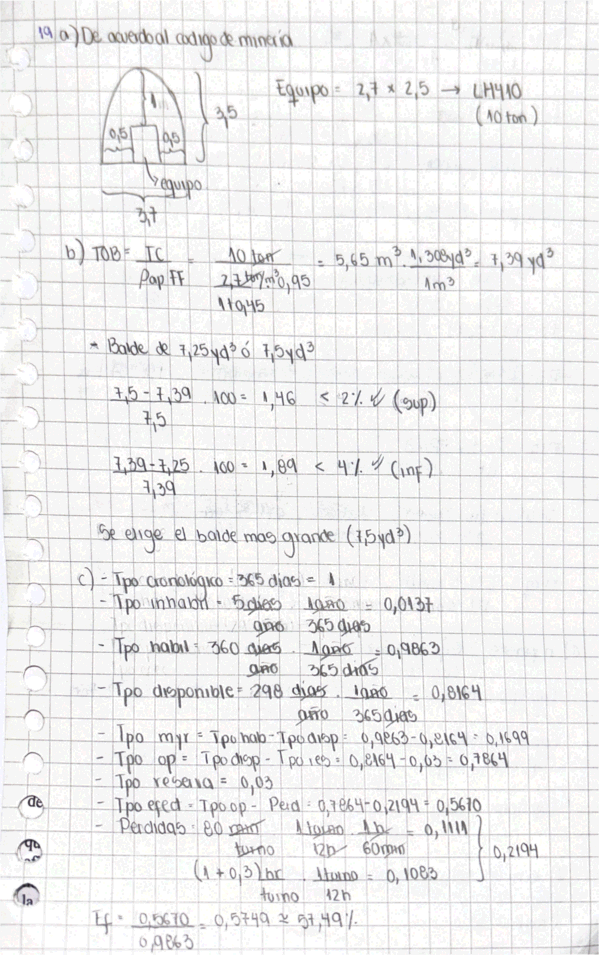 19 a) De acuerdo al codigo de mineria
Equipo = 2,7 * 2,5 → LH410
(10 ton)
1
3,5
0,5
0,5
equipo
3,7
b) TOB = TC / ρap FF = 10 ton / (2,7 ton/m³ 0,95 / 1+0,45) = 5,65 m³ · 1,308yd³ / 1m³ = 7,39 yd³
* Balde de 7,25yd³ ó 7,5yd³
(7,5 - 7,39) / 7,5 · 100 = 1,46 < 2% ✓ (sup)
(7,39 - 7,25) / 7,39 · 100 = 1,89 < 4% ✓ (inf)
Se elige el balde mas grande (7,5yd³)
c) - Tpo cronológico = 365 dias = 1
- Tpo inhabil = 5 dias / año · 1 año / 365 dias = 0,0137
- Tpo habil = 360 dias / año · 1 año / 365 dias = 0,9863
- Tpo disponible = 298 dias / año · 1 año / 365 dias = 0,8164
- Tpo myr = Tpo hab - Tpo disp = 0,9863 - 0,8164 = 0,1699
- Tpo op = Tpo disp - Tpo res = 0,8164 - 0,03 = 0,7864
- Tpo reserva = 0,03
- Tpo efed = Tpo op - Perd = 0,7864 - 0,2194 = 0,5670
- Perdidas = 80 min / turno · 1 turno / 12h · 1h / 60min = 0,1111
(1 + 0,3) hr / turno · 1 turno / 12h = 0,1083
0,2194
Ef = 0,5670 / 0,9863 = 0,5749 ≈ 57,49%
de
la